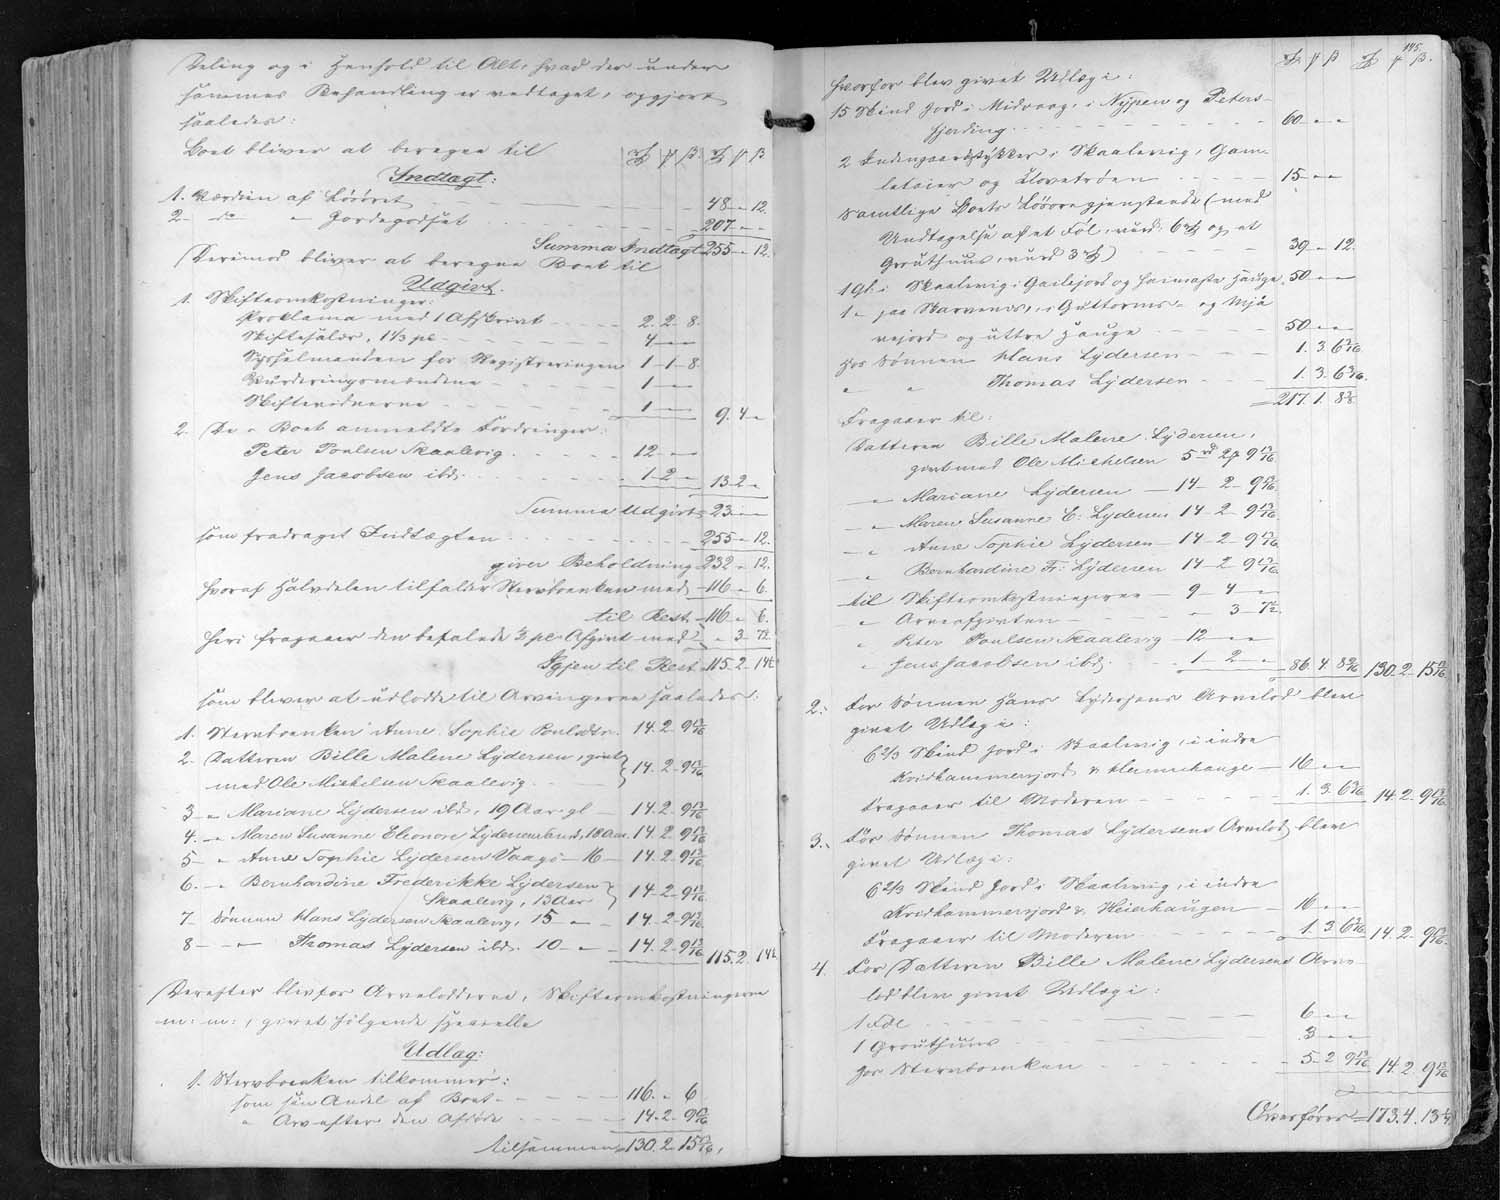 Deling og i Henhold til Alt, hvad der under
sammes Behandling er vedtaget, opgjort
saaledes:
Boet bliver at beregne til
Indtægt:
1. Værdien af Løsöret 48 " 12.
2 - do " Jordegodset 207 " "
Summa Indtægt 255 " 12.
Derimod bliver at beregne Boet til
Udgivt.
1. Skifteomkostninger:
Proklama med 1 Afskrivt 2. 2. 8.
Skiftesalær, 1 1/3 pc 4 " "
Sysselmanden for Registreringen 1 - 1 - 8.
Vurderingsmændene 1 "
Skiftevidnerne 1 " 9. 4 "
2. De i Boet anmeldte Fordringer:
Peter Poulsen Skaalevig 12 " "
Jens Jacobsen ibd. 1 - 2 " 13. 2 "
Summa Udgivt 23 " "
som fradraget Indtægten 255 " 12.
giver Beholdning 232 " 12.
hvoraf Halvdelen tilfalder Stervboenken med 116 " 6.
til Rest 116 " 6.
heri fragaaer den befalede 1/2 pc Afgivt med " 3 - 7 1/2
Igjen til Rest 115. 2. 14 1/2
som bliver at udlodde til Arvingerne saaledes:
1. Stervboenken Anne Sophie Poulsdtr. 14. 2. 9 13/16
2. Datteren Bille Malene Lydersen, givt
med Ole Michelsen Skaalevig 14. 2. 9 13/16
3 " Mariane Lydersen ibd., 19 Aar gl 14. 2. 9 13/16
4. " Maren Susanne Eleonore Lydersen ibid, 18 Aar 14. 2. 9 13/16
5 " Anne Sophie Lydersen Vaagö - 16 - 14. 2. 9 13/16
6. " Bernhardine Frederikke Lydersen
Skaalevig, 13 Aar 14. 2. 9 13/16
7 - Sönnen Hans Lydersen Skaalevig, 15 " 14. 2. 9 13/16
8 - " Thomas Lydersen ibd. 10 " 14. 2. 9 13/16 115. 2. 14 1/2
Derefter blev for Arvelodderne, Skifteomkostningerne
m: m:, givet følgende specielle
Udlæg:
1. Stervboenken tilkommer:
som sin Andel af Boet 116. " 6
" Arv efter den Afdøde 14. 2. 9 13/16
tilsammen 130. 2. 15 13/16,
145.
hvorfor blev givet Udlæg i:
15 Skind Jord i Midvaag, i Nypen og Peters-
fjerding 60 " "
2 Indengaardsstykker i Skaalevig, Gam-
letøier og Klovetrøen 15 " "
Samtlige Boets Løsøregjenstande (med
Undtagelse af et Föl, vurd. 6 rd og et
Grouthuus, vurd 3 rd) 39 " 12.
1 Gl. i Skaalevig i Gaitejord og Heimaste Hauge 50 " "
1 " paa Skarvenes, i Guttorms- og Mjá
vejord og uttre Hauge 50 " "
hos Sønnen Hans Lydersen 1. 3. 6 3/16
" " Thomas Lydersen 1. 3. 6 3/16.
217. 1. 8 3/8
Fragaaer til:
Datteren Bille Malene Lydersen,
givt med Ole Michelsen 5 rd 2 9 13/16
" Mariane Lydersen 14 - 2 - 9 13/16
" Maren Susanne E. Lydersen 14 - 2 - 9 13/16
" Anne Sophie Lydersen 14 - 2 - 9 13/16
" Bernhardine Fr: Lydersen 14 - 2 - 9 13/16
til Skifteomkostningerne 9 - 4 "
" Arveafgivten " 3 7 1/2
" Peter Poulsen Skaalevig 12 " "
" Jens Jacobsen ibd. 1 - 2 " 86. 4. 8 9/16 130. 2. 15 13/16
2. For Sønnen Hans Lydersens Arvelod blev
givet Udlæg i:
6 2/3 Skind Jord i Skaalevig, i indre
Kvidhammersjord & Heimehauge 16 " "
Fragaaer til Moderen 1. 3. 6 3/16 14. 2. 9 13/16
3. For Sønnen Thomas Lydersens Arvelod blev
givet Udlæg i:
6 2/3 Skind Jord i Skaalevig, i indre
Kvidhammersjord & Heierhaugen 16 " "
Fragaaer til Moderen 1. 3. 6 3/16 14. 2. 9 13/16.
4. For Datteren Bille Malene Lydersens Arve-
lod blev givet Udlæg i:
1 Föl 6 " "
1 Grouthuus 3 " "
hos Stervboenken 5 - 2 9 13/16 14. 2. 9 13/16
Overføres 173. 4. 13 1/4